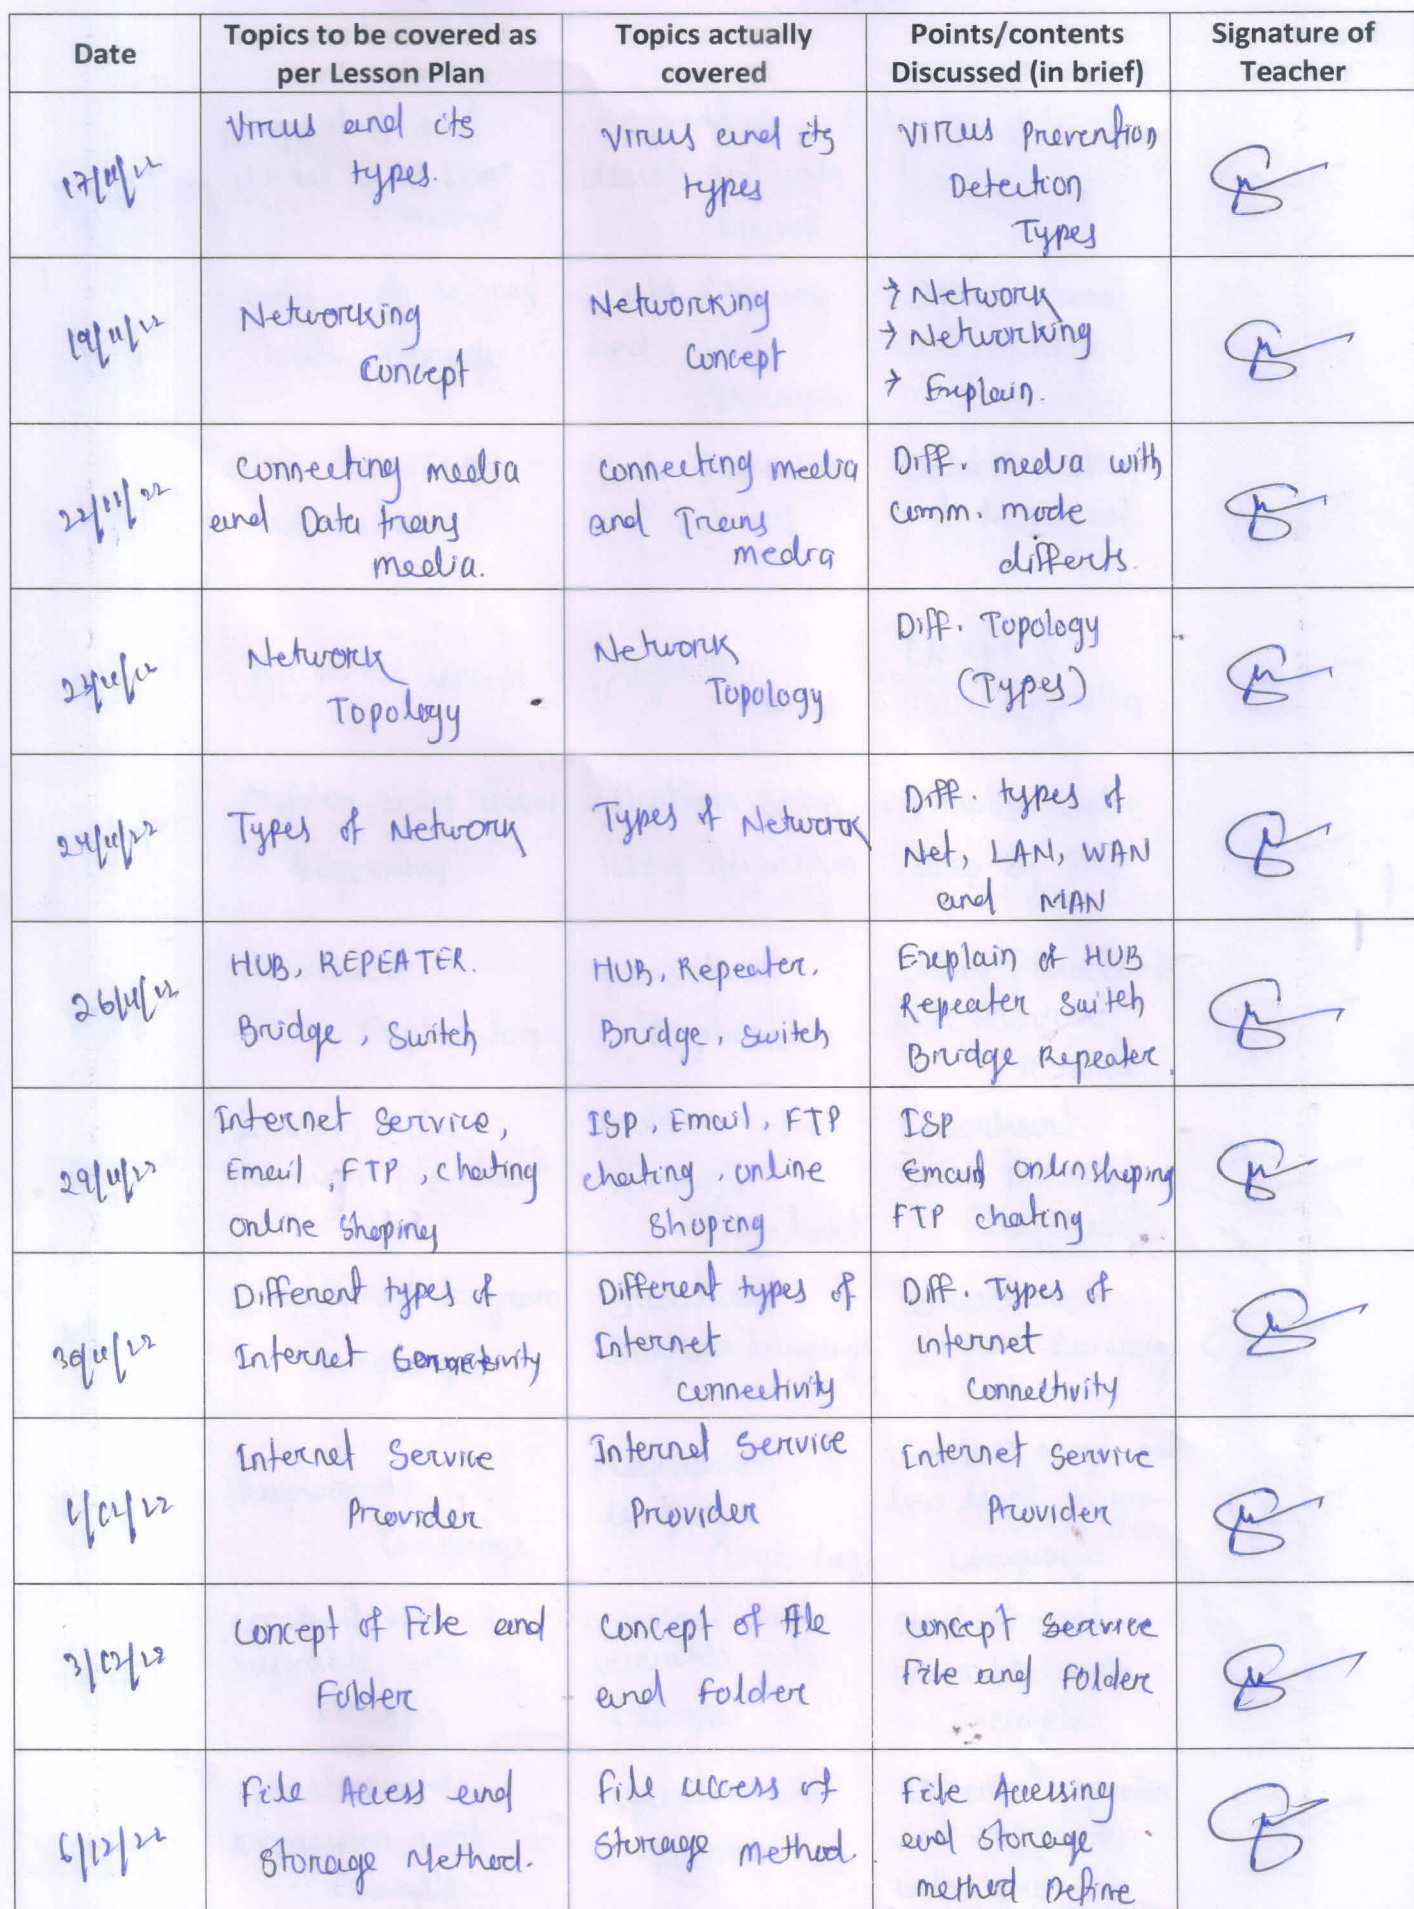 Date
Topics to be covered as
per Lesson Plan
Topics actually
covered
Points/contents
Discussed (in brief)
Signature of
Teacher
17/11/22
Virus and its
types.
Virus and its
types
Virus Prevention
Detection
Types
19/11/22
Networking
Concept
Networking
Concept
→ Network
→ Networking
→ Explain.
22/11/22
Connecting media
and Data trans
media.
Connecting media
and Trans
media
Diff. media with
comm. mode
differts.
23/11/22
Network
Topology
Network
Topology
Diff. Topology
(Types)
24/11/22
Types of Network
Types of Network
Diff. types of
Net, LAN, WAN
and MAN
26/11/22
HUB, REPEATER.
Bridge, Switch
HUB, Repeater.
Bridge, switch
Explain of HUB
Repeater Switch
Bridge Repeater.
29/11/22
Internet Service,
Email, FTP, chating
online Shoping
ISP, Email, FTP
chating, online
Shoping
ISP
Email onlinshoping
FTP chating
30/11/22
Different types of
Internet Connectivity
Different types of
Internet
connectivity
Diff. Types of
internet
Connectivity
1/12/22
Internet Service
Provider
Internet Service
Provider
Internet Service
Provider
3/12/22
Concept of File and
Folder
Concept of File
and Folder
Concept Service
File and Folder
6/12/22
File Access and
Storage Method.
File access of
Storage method.
File Accessing
and storage
method Define